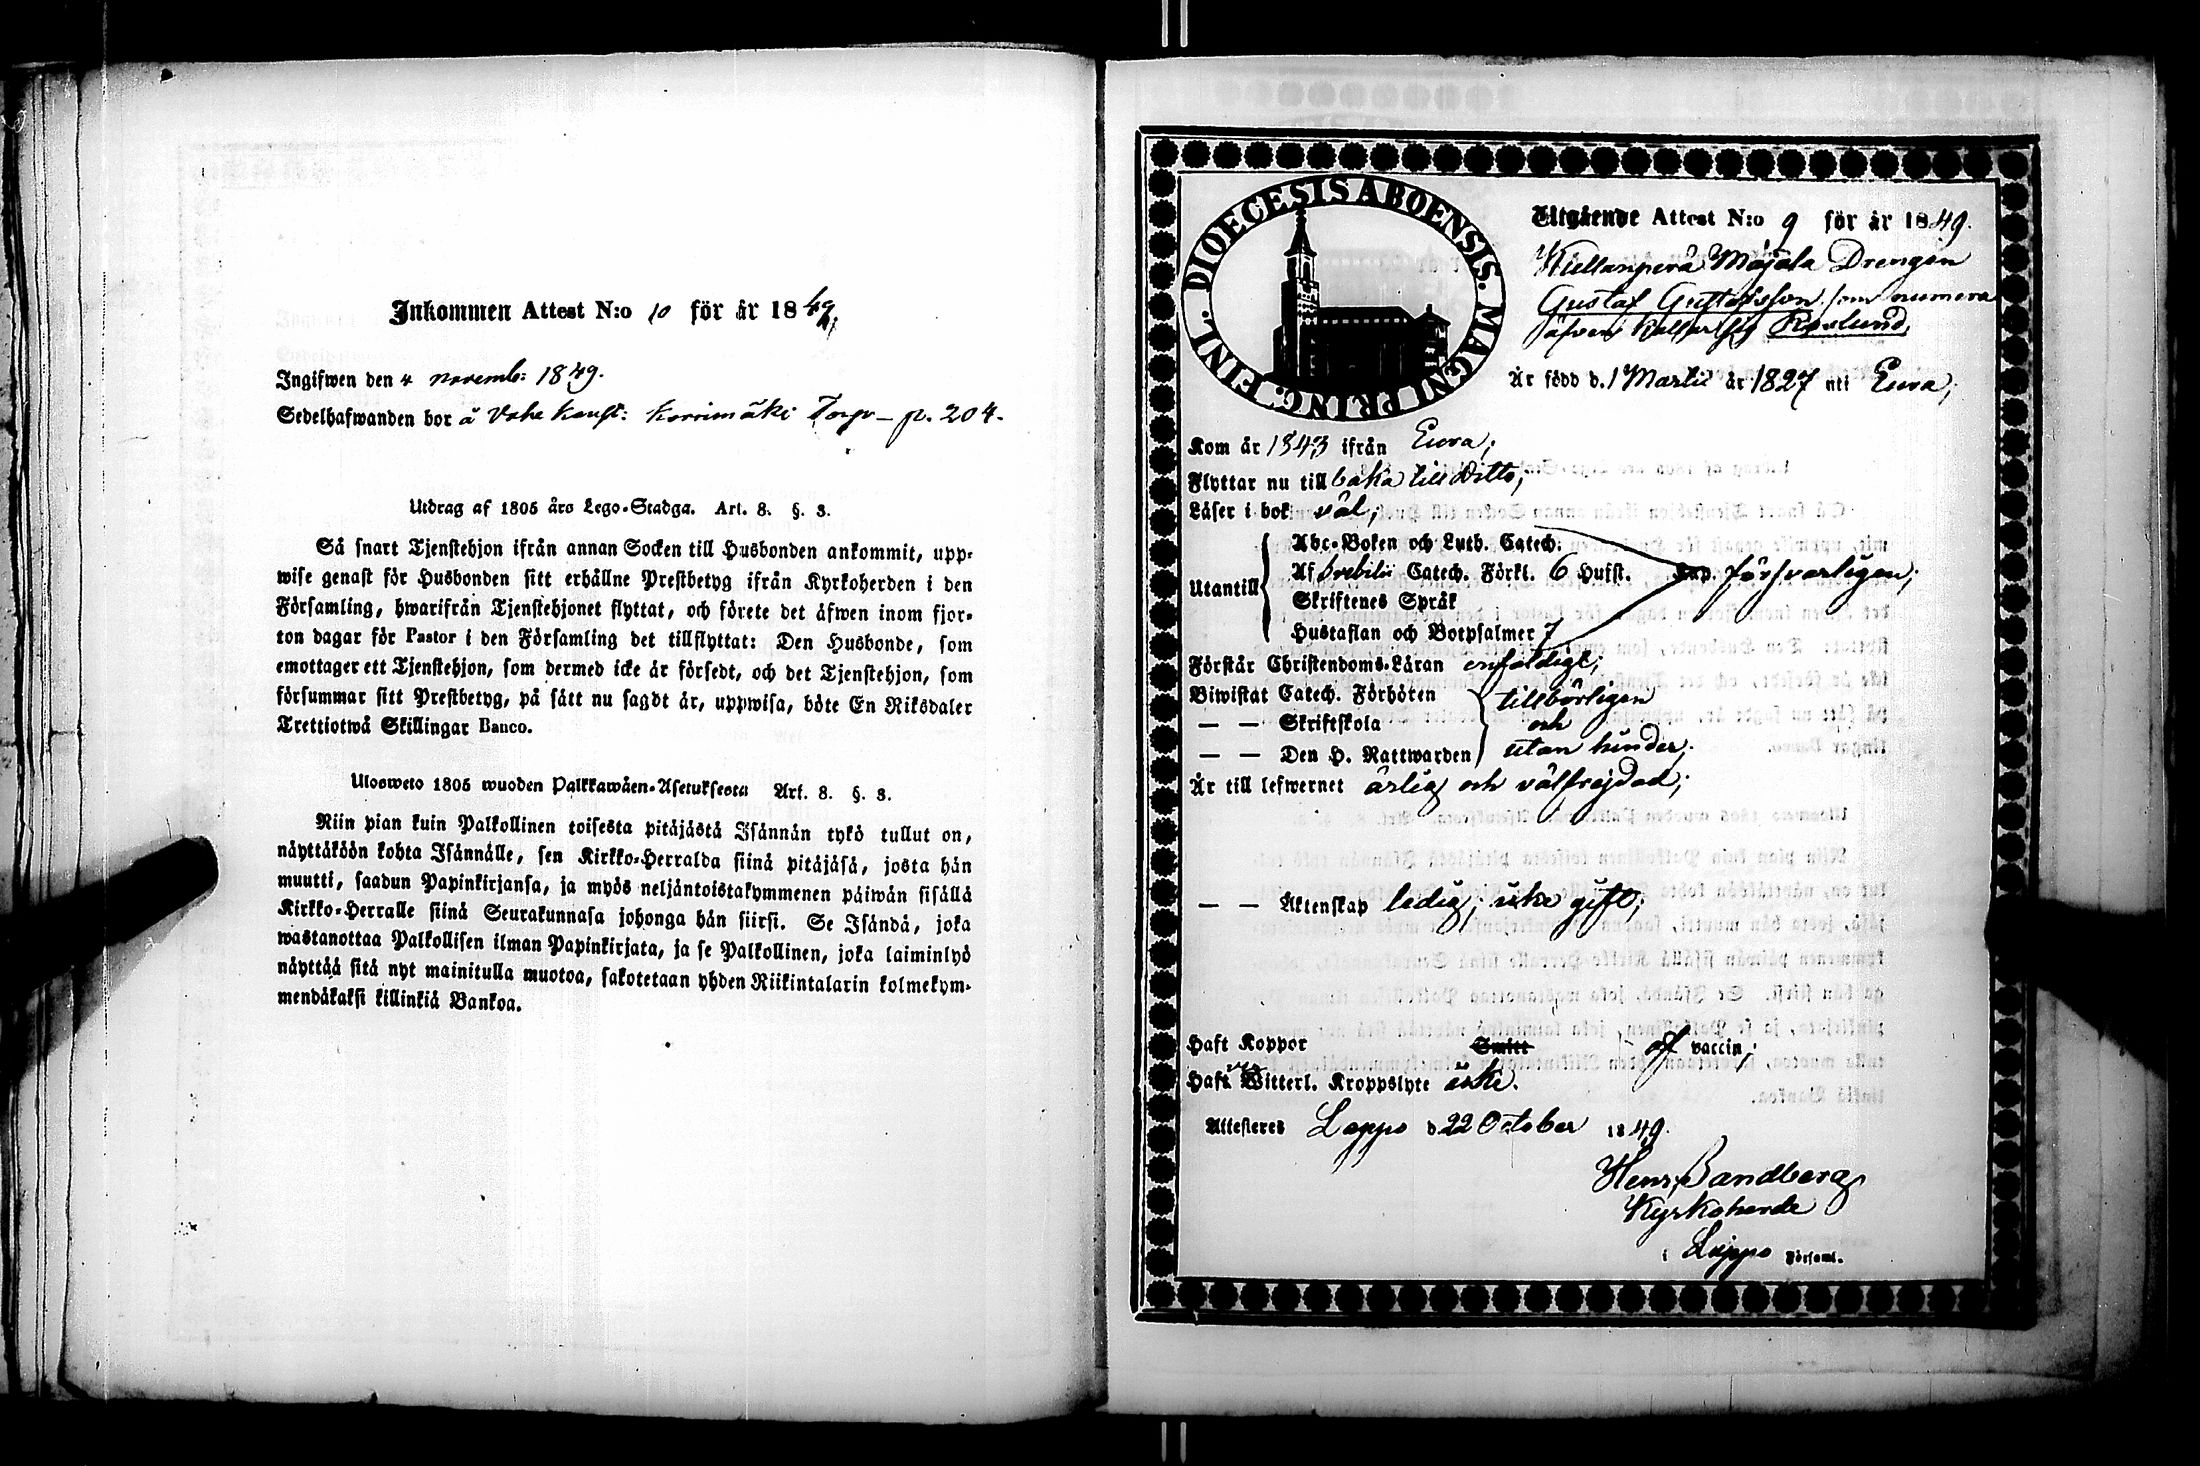 Inkommen Attest N:o 10 för år 1849.
Ingifwen den 4 novemb: 1849.
Sedelhafwanden bor å Vahe Kauft: Korrimäki Torp – p. 204.
Utdrag af 1805 års Lego-Stadga. Art. 8. §. 3.
Så snart Tjenstehjon ifrån annan Socken till Husbonden ankommit, upp-
wise genast för Husbonden sitt erhållne Prestbetyg ifrån Kyrkoherden i den
Församling, hwarifrån Tjenstehjonet flyttat, och förete det äfwen inom fjor-
ton dagar för Pastor i den Församling det tillflyttat: Den Husbonde, som
emottager ett Tjenstehjon, som dermed icke är försedt, och det Tjenstehjon, som
försummar sitt Prestbetyg, på sätt nu sagdt är, uppwisa, böte En Riksdaler
Trettiotwå Skillingar Banco.
Ulosweto 1805 wuoden Palkkawäen-Asetuksesta Art. 8. §. 3.
Niin pian kuin Palkollinen toisesta pitäjästä Isännän tykö tullut on,
näyttäköön kohta Isännälle, sen Kirkko-Herralda siinä pitäjäsä, josta hän
muutti, saadun Papinkirjansa, ja myös neljäntoistakymmenen päiwän sisällä
Kirkko-Herralle siinä Seurakunnasa johonga hän siirsi. Se Isändä, joka
wastanottaa Palkollisen ilman Papinkirjata, ja se Palkollinen, joka laiminlyö
näyttää sitä nyt mainitulla muotoa, sakotetaan yhden Riikintalarin kolmekym-
mendäkaksi killinkiä Bankoa.
DIOECESIS ABOENSIS. MAGNI PRINC. FINL.
Utgående Attest N:o 9 för år 1849.
Kiettanperä Majala Drengen
Gustaf Gustafsson som numera
äfven kallar sig Roslund,
Är född d. 1 Martii år 1827 uti Eura,
Kom år 1843 ifrån Eura;
Flyttar nu till baka till Ditto,
Läser i bok väl,
Utantill
Abc-Boken och Luth. Catech.
Af Svebilii Catech. Förkl. 6 Hufst. Cap. försvarligen;
Skriftenes Språk
Hustaflan och Botpsalmer 7
Förstår Christendoms-Läran enfaldigt;
Biwistat Catech. Förhören tillbörligen
— — Skriftskola och
— — Den H. Nattwarden utan hinder;
Är till lefwernet ärlig och välfrejdad;
— — Äktenskap ledig; icke gift;
Haft Koppor Smitt af vaccin;
Haft Witterl. Kroppslyte icke.
Attesteres Lappo d 22 October 1849.
Henr. Sandberg
Kyrkoherde
i Lappo Församl.